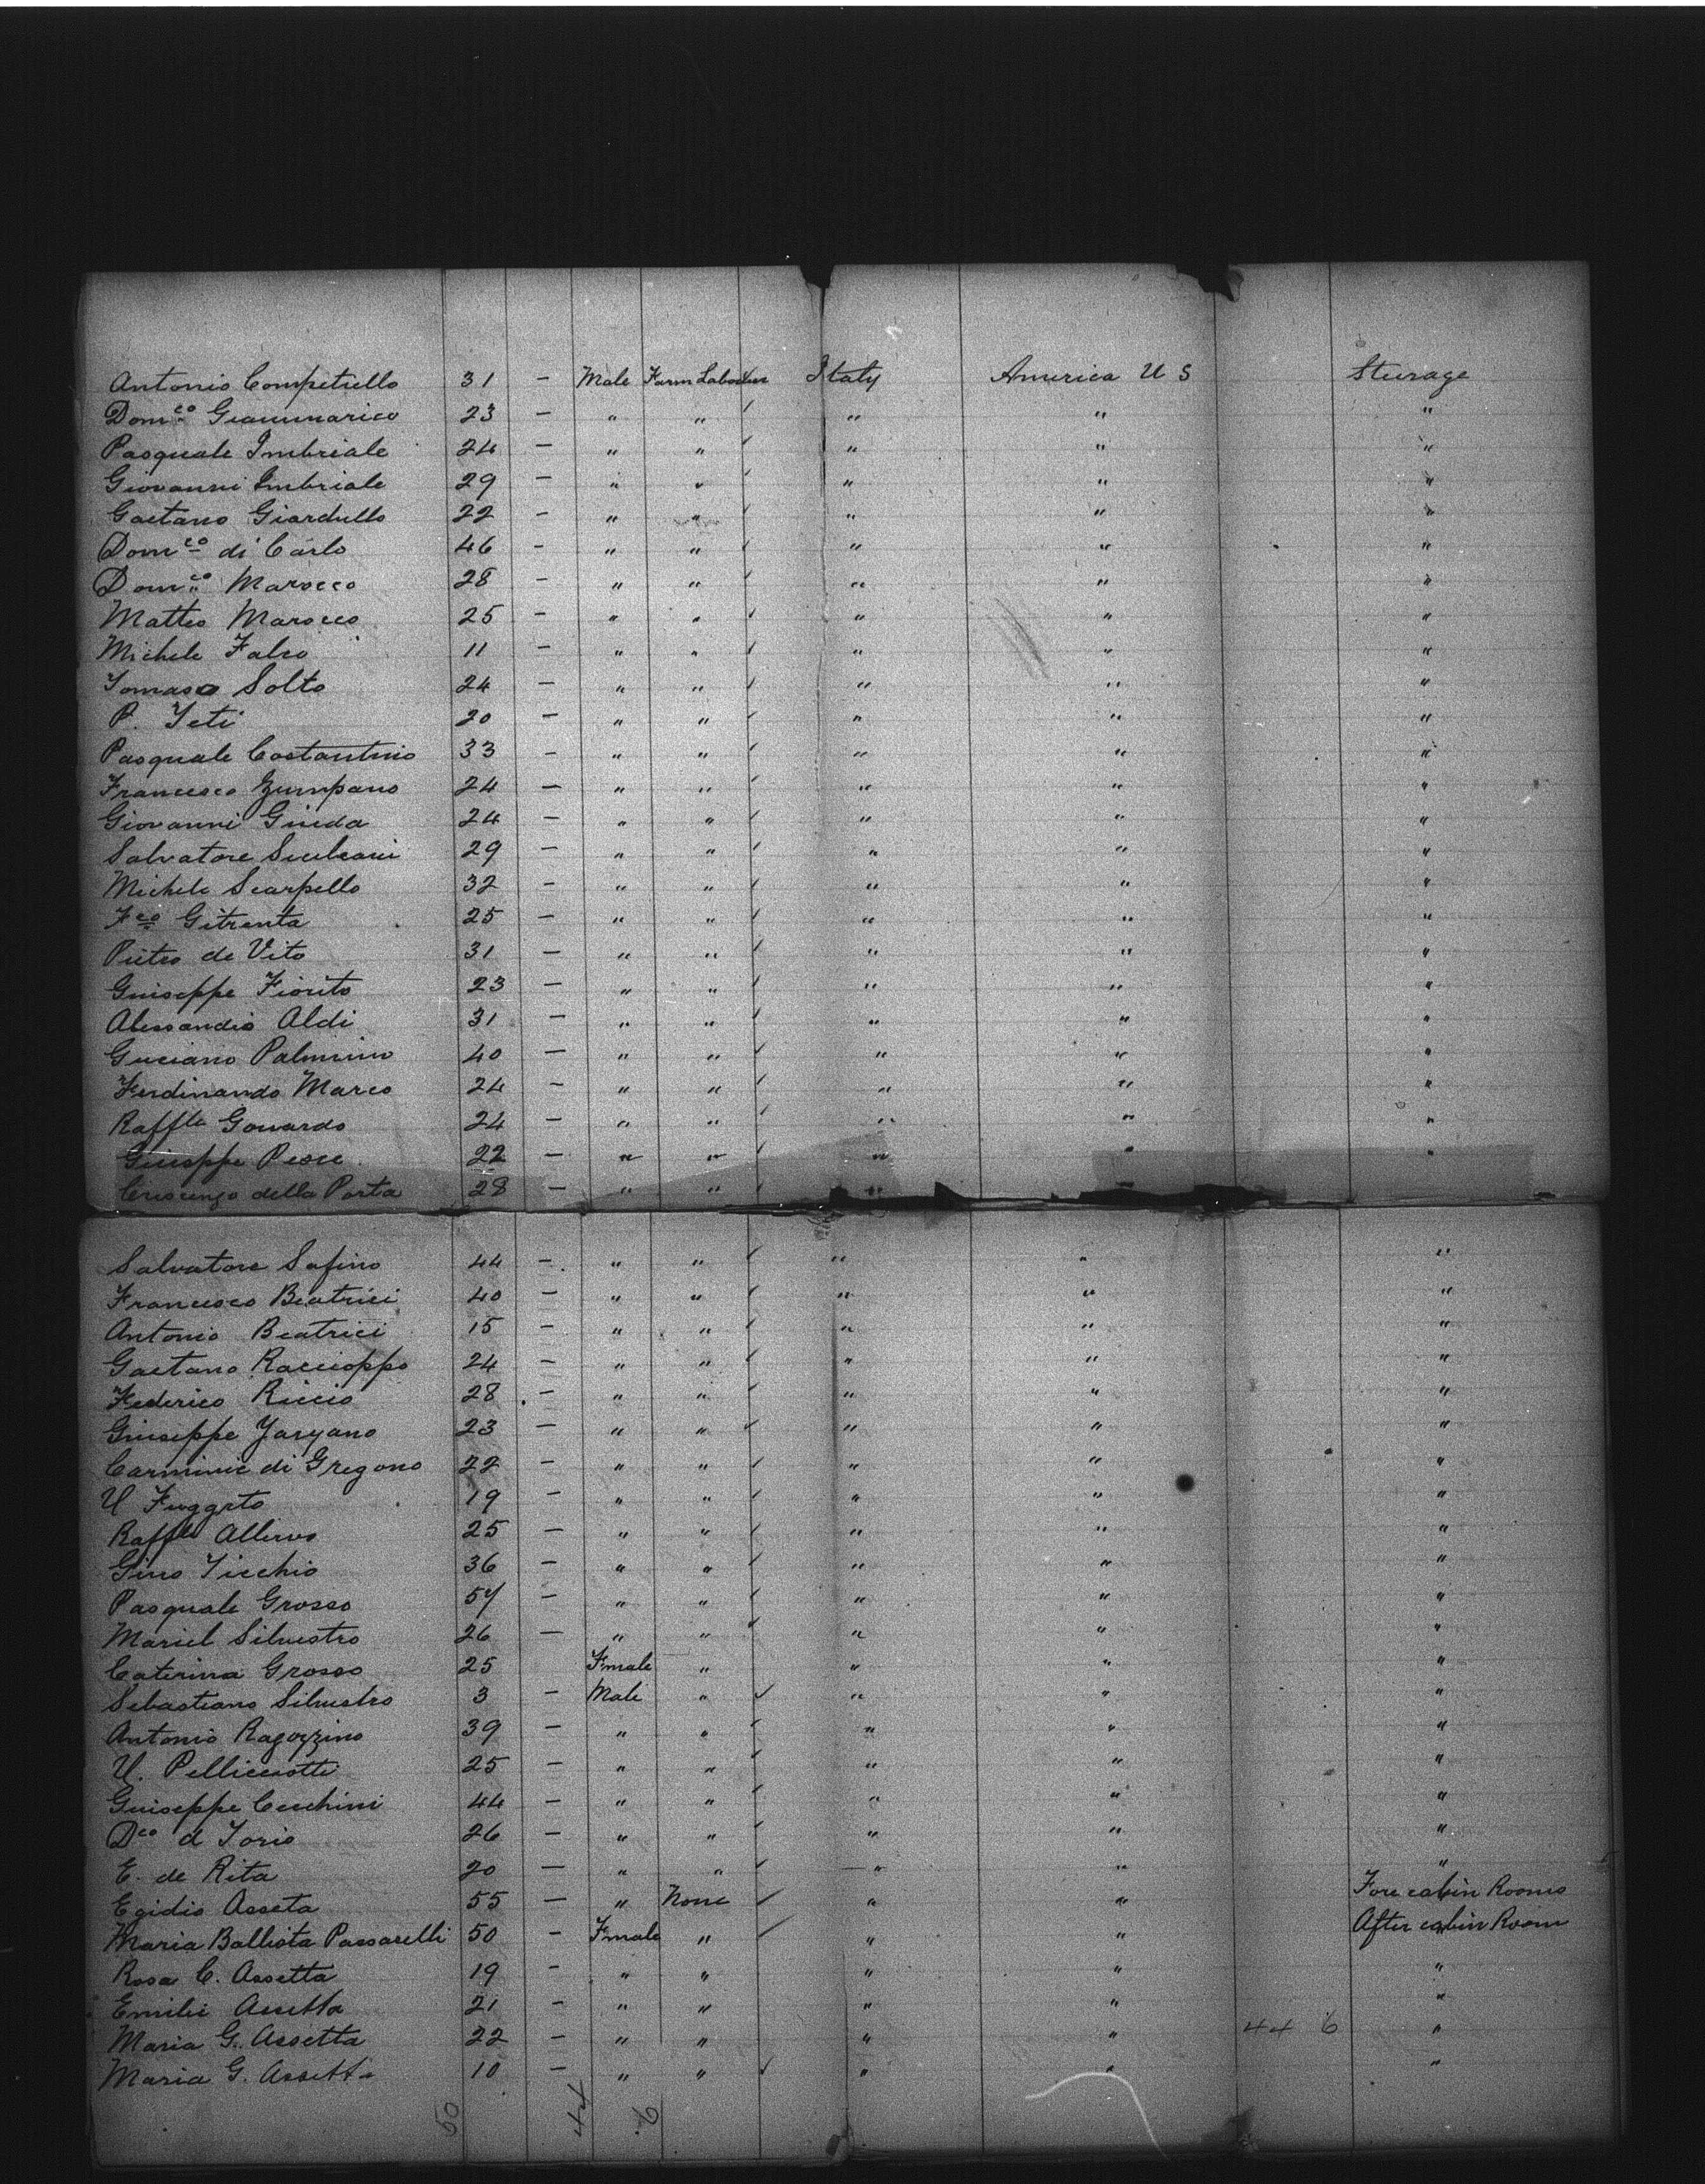 Antonio Competiello 31 - Male Farm Laborer Italy America U S Sturage
Domco Giammarico 23 - " " " " "
Pasquale Imbriale 24 - " " " " "
Giovanni Imbriale 29 - " " " " "
Gaetano Giardullo 22 - " " " " "
Domco di Carlo 46 - " " " " "
Domco Marocco 28 - " " " " "
Matteo Marocco 25 - " " " " "
Michele Falco 11 - " " " " "
Tomaso Solto 24 - " " " " "
P. Teti 20 - " " " " "
Pasquale Costantino 33 - " " " " "
Francesco Zumpano 24 - " " " " "
Giovanni Guida 24 - " " " " "
Salvatore 29 - " " " " "
Michele Scarpello 32 - " " " " "
Fco Gitrenta 25 - " " " " "
Pietro de Vito 31 - " " " " "
Guiseppe Fiorito 23 - " " " " "
Alessandro Aldi 31 - " " " " "
Guciano Palmino 40 - " " " " "
Ferdinando Marco 24 - " " " " "
Raffle Gowardo 24 - " " " " "
Giuseppe Pesce 22 - " " " " "
Criscenzo della Porta 28 - " " "
Salvatore Safino 44 - " " " " "
Francesco Beatrici 40 - " " " " "
Antonio Beatrici 15 - " " " " "
Gaetano Raccioppo 24 - " " " " "
Federico Riccio 28 - " " " " "
Giuseppe Yaryano 23 - " " " " "
Carminie di Gregono 22 - " " " " "
U Fuggeto 19 - " " " " "
Raffle Allievo 25 - " " " " "
Gino Ticchio 36 - " " " " "
Pasquale Grosso 57 - " " " " "
Mariel Silvestro 26 - " " " " "
Caterina Grosso 25 Fmale " " " "
Sebastiano Silvestro 3 - Male " " " "
Antonio Ragozzino 39 - " " " " "
U. Pellicciotti 25 - " " " " "
Guiseppe Cecchini 44 - " " " " "
Dco d Iorio 26 - " " " " "
E. de Rita 20 - " " " " "
Egidio Asseta 55 - " None " " Fore cabin Rooms
Maria Ballista Passarelli 50 - Fmale " " " After cabin Room
Rosa C. Assetta 19 - " " " " "
Emilie Assetta 21 - " " " " "
Maria G. Assetta 22 - " " " " 44 6 "
Maria G. Assetta 10 - " " " " "
50 44 6